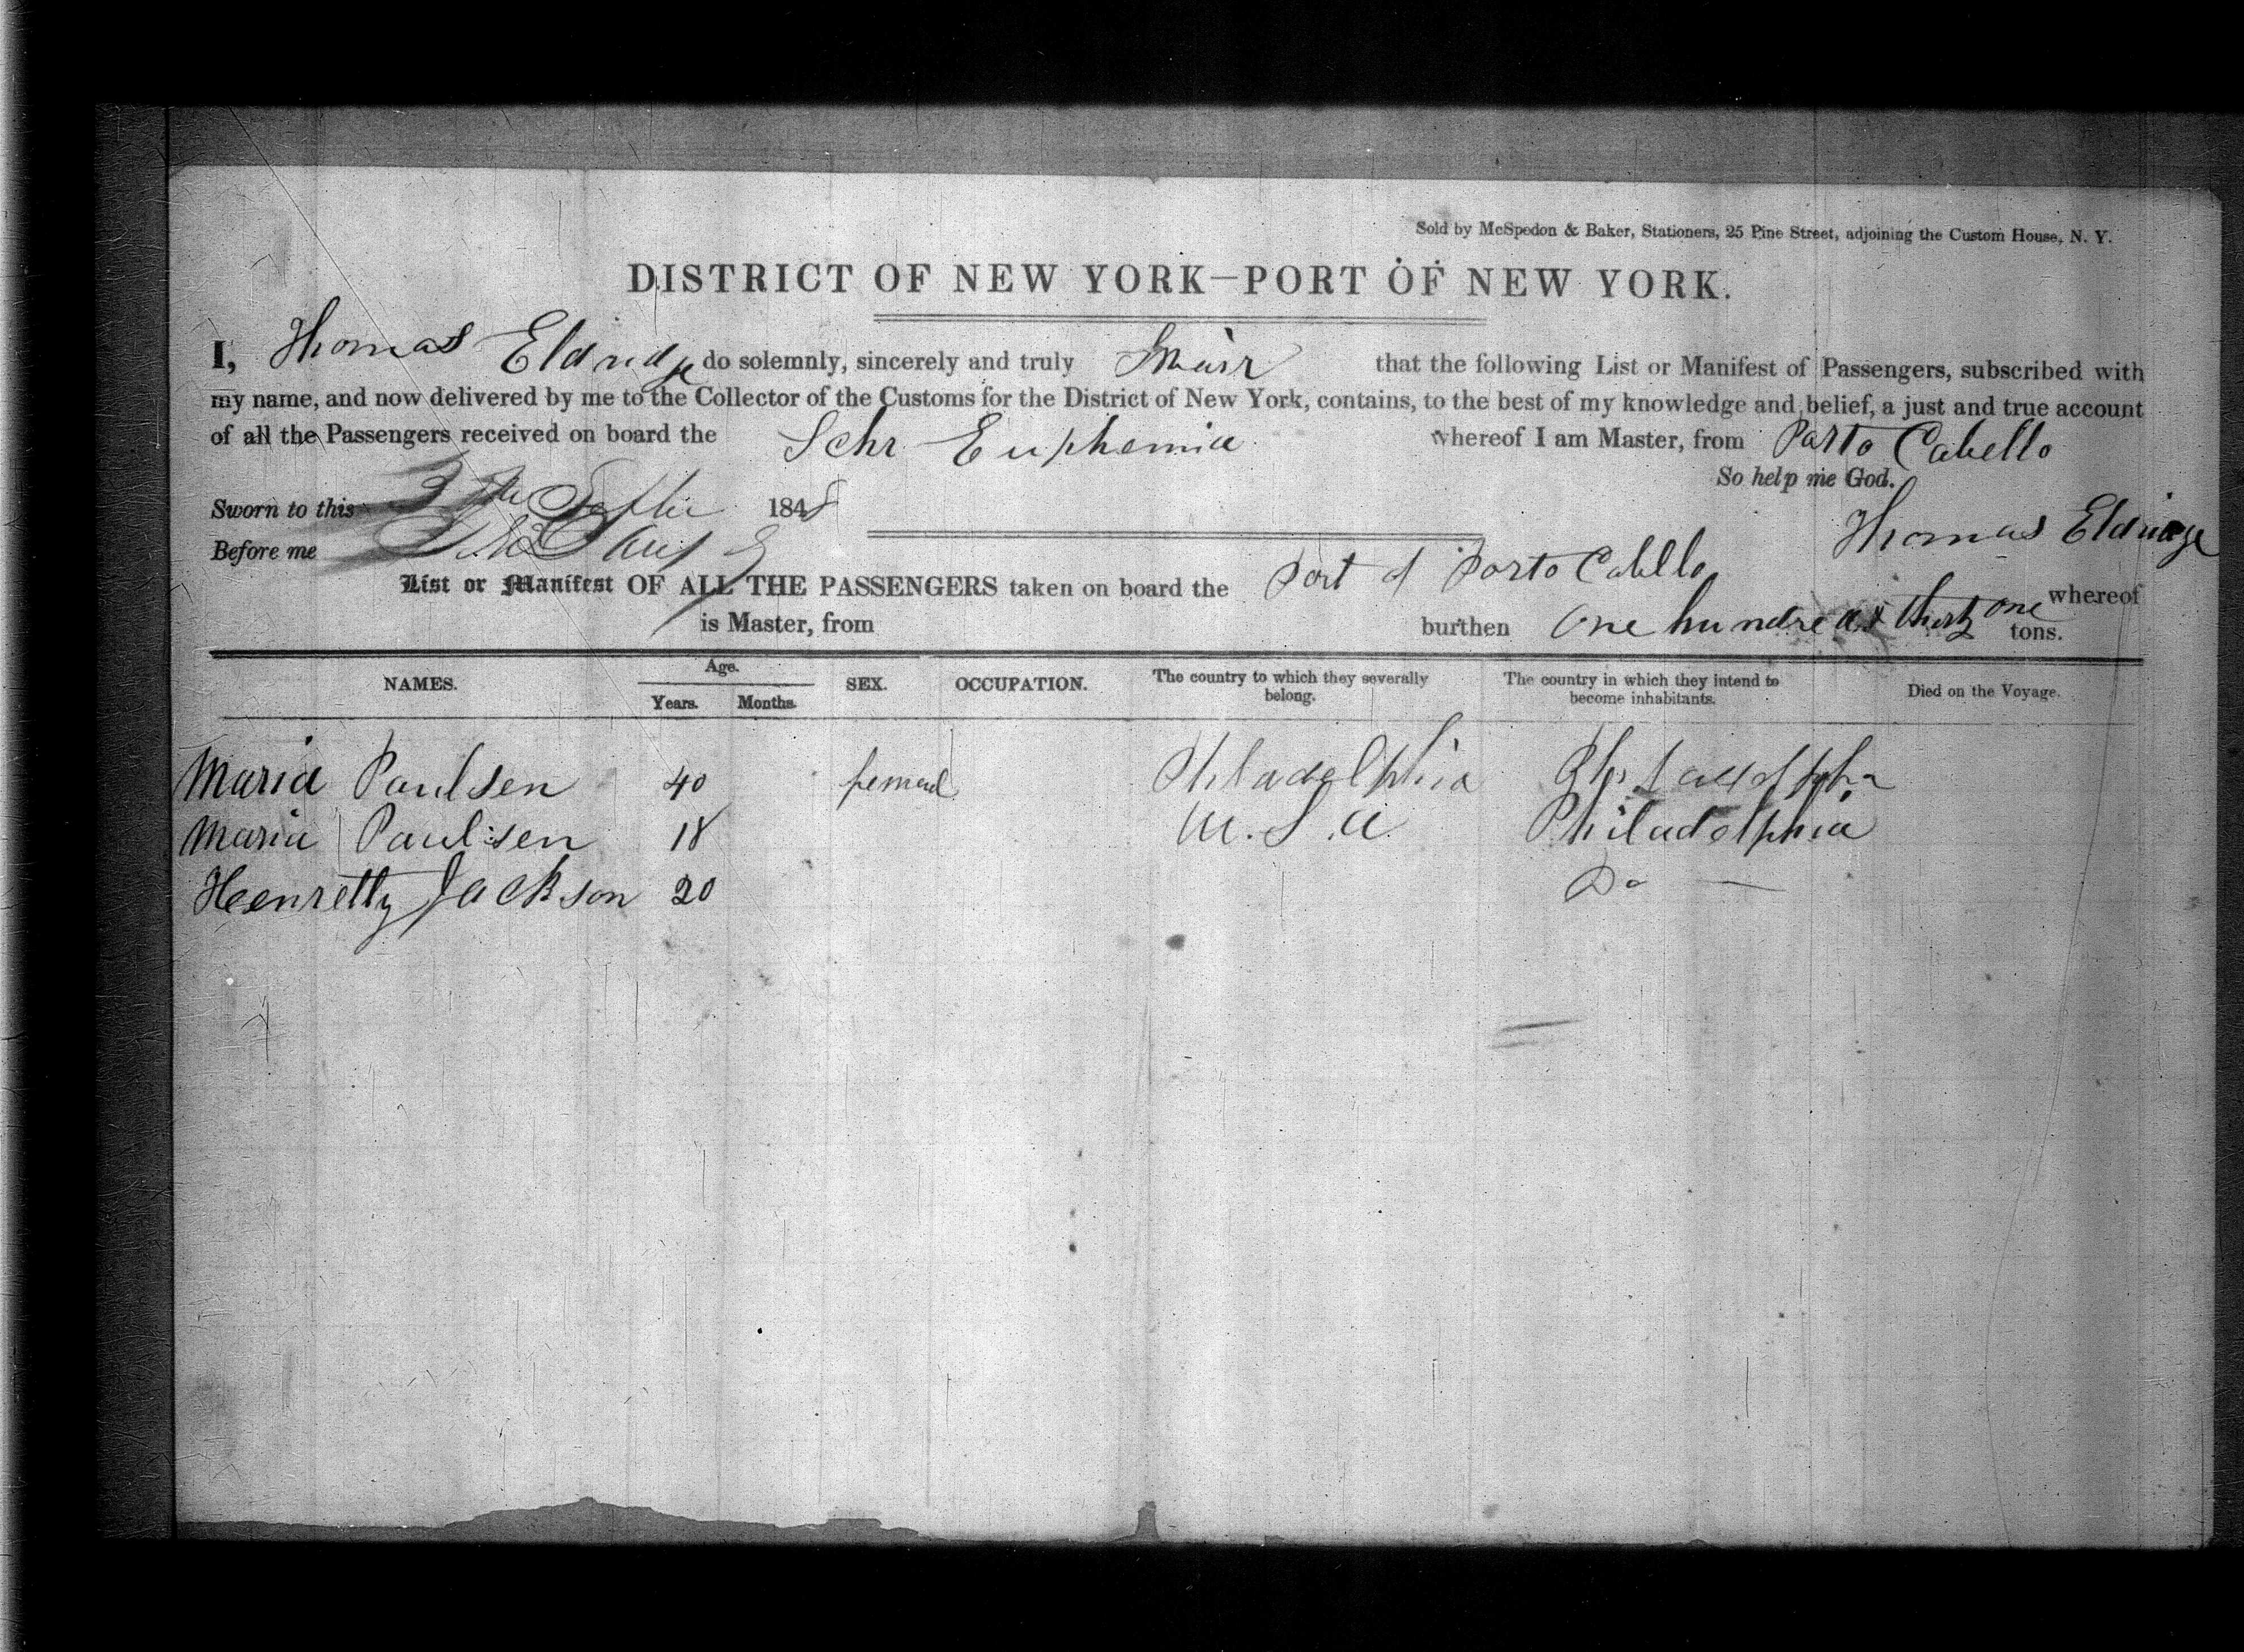 Sold by McSpedon & Baker, Stationers, 25 Pine Street, adjoining the Custom House, N. Y.
DISTRICT OF NEW YORK—PORT OF NEW YORK.
I, Thomas Eldridge do solemnly, sincerely and truly Swear that the following List or Manifest of Passengers, subscribed with
my name, and now delivered by me to the Collector of the Customs for the District of New York, contains, to the best of my knowledge and belief, a just and true account
of all the Passengers received on board the Schr Euphemia whereof I am Master, from Porto Cabello
So help me God.
Sworn to this 1848
Thomas Eldridge
Before me
List or Manifest OF ALL THE PASSENGERS taken on board the Port of Porto Cabello whereof
is Master, from burthen One hundred & thirty one tons.
NAMES. Age. Years. Months. SEX. OCCUPATION. The country to which they severally belong. The country in which they intend to become inhabitants. Died on the Voyage.
Maria Paulsen 40 femal Philadelphia
Maria Paulsen 18 U.S.A. Philadelphia
Heenretty Jackson 20 Do